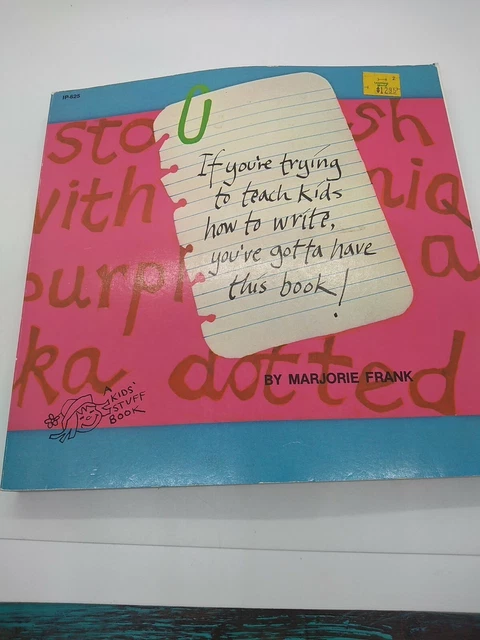 IP 625
$12.95
sto
sh
with
niq
purpl
a
ka dotted
If you're trying
to teach kids
how to write,
you've gotta have
this book!
BY MARJORIE FRANK
A
KIDS'
STUFF
BOOK